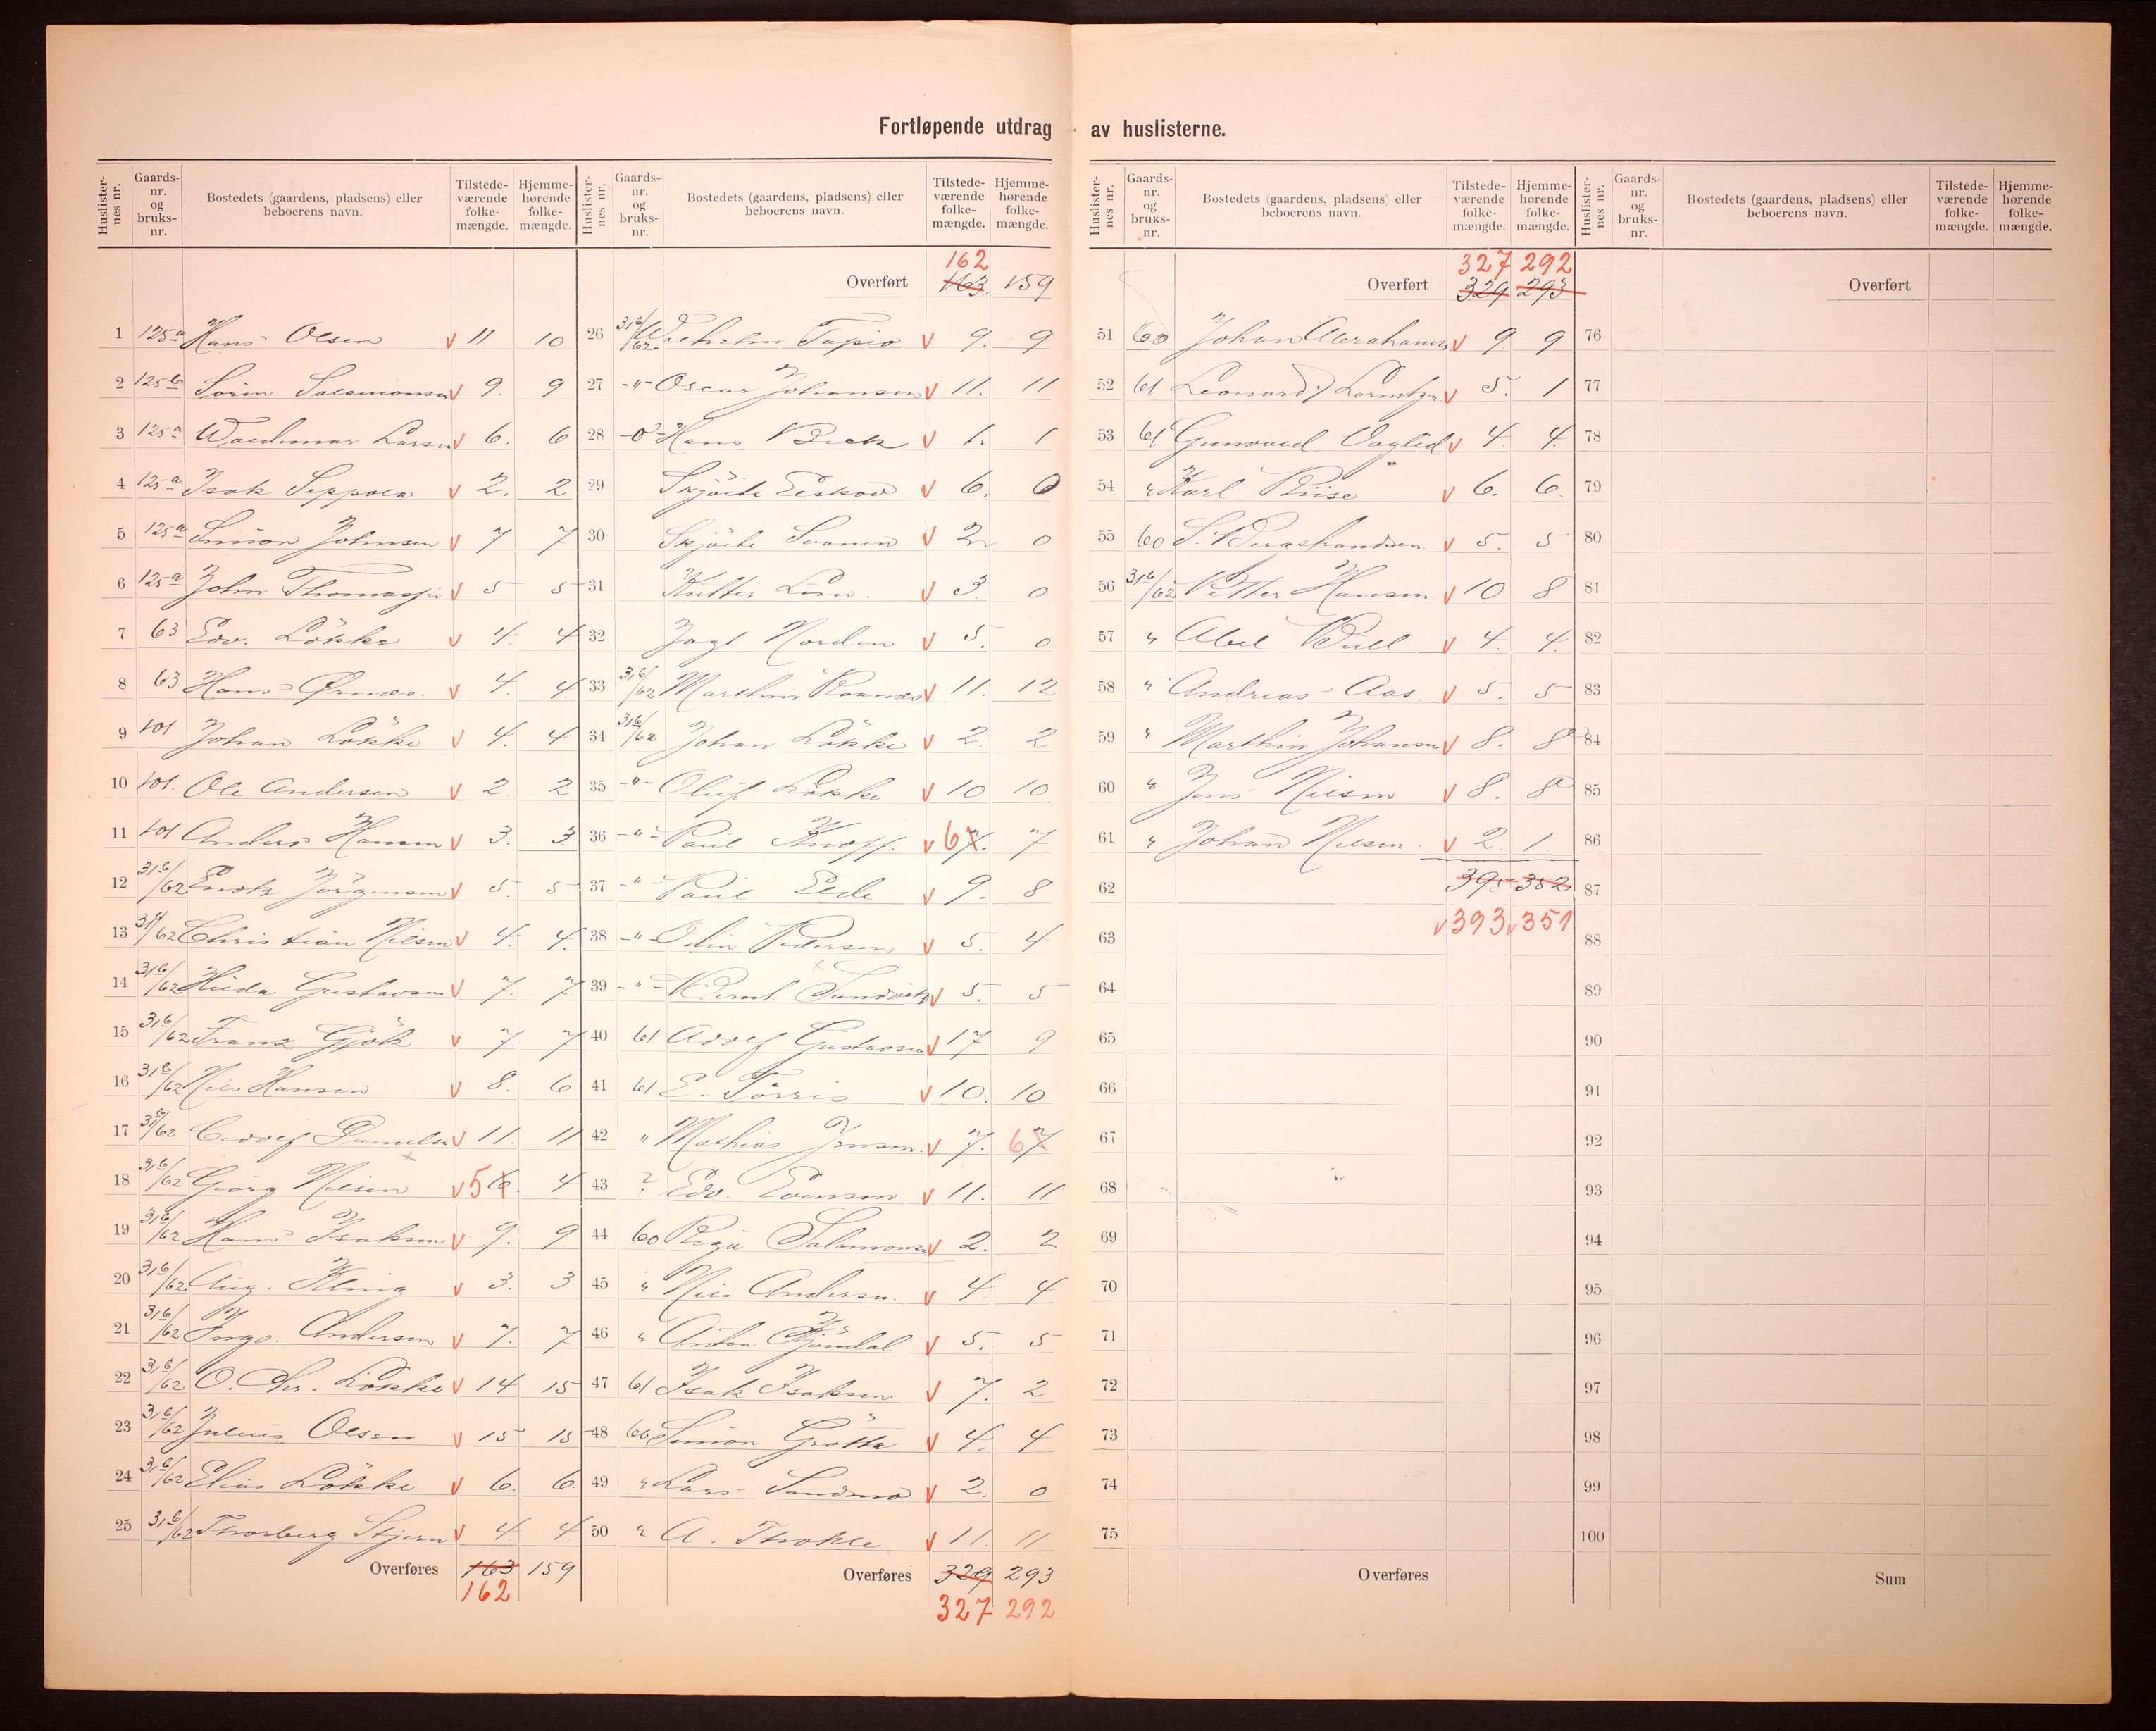 Fortløpende utdrag av huslisterne.
Huslister-nes nr. Gaards-nr. og bruks-nr. Bostedets (gaardens, pladsens) eller beboerens navn. Tilstede-værende folke-mængde. Hjemme-hørende folke-mængde.
1 125a Hans Olsen v 11 10
2 125b Sörin Salamonsen v 9. 9
3 125a Waldemar Larsen v 6. 6
4 125a Isak Seppola v 2. 2
5 125a Simon Johnsen v 7 7
6 125a John v 5 5
7 63 Edv. Lökke v 4 4
8 63 Hans Ørnæs. v 4. 4.
9 101 Johan Lökke v 4. 4
10 101. Ole Andersen v 2. 2
11 101 Anders Hansen v 3. 3
12 31,6/62 Enok Jörgensen v 5. 5
13 31,6/62 Christian Nilsen v 4. 4.
14 31,6/62 Hilda Gustavsen v 7. 7
15 31,6/62 Franz Gjök v 7. 7
16 31,6/62 Nils Hansen v 8. 6
17 31,6/62 Adolf Danielsen v 11. 11
18 31,6/62 Georg Nilsen v 5 6. 4
19 31,6/62 Hans Isaksen v 9. 9
20 31,6/62 Aug. Kling v 3. 3
21 31,6/62 Inga. Andersen v 7. 7
22 31,6/62 O. Chr. Lökke v 14 15
23 31,6/62 Julius Olsen v 15 15
24 31,6/62 Elias Lökke v 6. 6.
25 31,6/62 Thorberg Stjern v 4. 4.
Overføres 163 159
162
Huslister-nes nr. Gaards-nr. og bruks-nr. Bostedets (gaardens, pladsens) eller beboerens navn. Tilstede-værende folke-mængde. Hjemme-hørende folke-mængde.
162
Overført 163. 159
26 31,6/62 Wilhelm Tapio v 9. 9
27 -"- Oscar Johansen v 11. 11
28 -o- Hans Beck v 1. 1
29 Skjöite Elskov v 6. 0
30 Skjöite Svanen v 2 0
31 Kutter v 3. 0
32 Jagt Norden v 5. 0
33 31,6/62 Marthin v 11. 12
34 31,6/62 Johan Lökke v 2. 2
35 -"- Oluf Lökke v 10 10
36 -"- Paul Knoff. v 6 7. 7
37 -"- Paul Eide v 9. 8
38 -"- Odin Pedersen v 5. 4
39 -"- Bernt. Sandvik v 5. 5
40 61 Adolf Gustavsen v 17 9
41 61 E. Törris v 10. 10
42 " Mathias Jensen. v 7. 6 7
43 ? Edv. Evensen v 11. 11
44 60 Salomonsen v 2. 2
45 " Nils Andersen. v 4 4
46 " Anton v 5. 5
47 61 Isak Isaksen v 7. 2
48 60 Simon Grötte v 4. 4
49 " Lars Sandmo v 2. 0
50 " A. v 11. 11
Overføres 329 293
327 292
Huslister-nes nr. Gaards-nr. og bruks-nr. Bostedets (gaardens, pladsens) eller beboerens navn. Tilstede-værende folke-mængde. Hjemme-hørende folke-mængde.
327 292
Overført 329 293
51 60 Johan Abrahamsen v 9. 9
52 61 Leonard v 5. 1
53 61 Gunvald v 4. 4.
54 " Karl Brise v 6. 6.
55 60 S. v 5. 5
56 31,6/62 Petter Hansen v 10 8
57 " Abel Bull v 4. 4.
58 " Andreas Aas. v 5. 5
59 " Marthin Johansen v 8. 8
60 " Jens Nilsen v 8. 8
61 " Johan Nilsen. v 2. 1
62 395 352
63 v 393 v 351
64
65
66
67
68
69
70
71
72
73
74
75
Overføres
Huslister-nes nr. Gaards-nr. og bruks-nr. Bostedets (gaardens, pladsens) eller beboerens navn. Tilstede-værende folke-mængde. Hjemme-hørende folke-mængde.
Overført
76
77
78
79
80
81
82
83
84
85
86
87
88
89
90
91
92
93
94
95
96
97
98
99
100
Sum